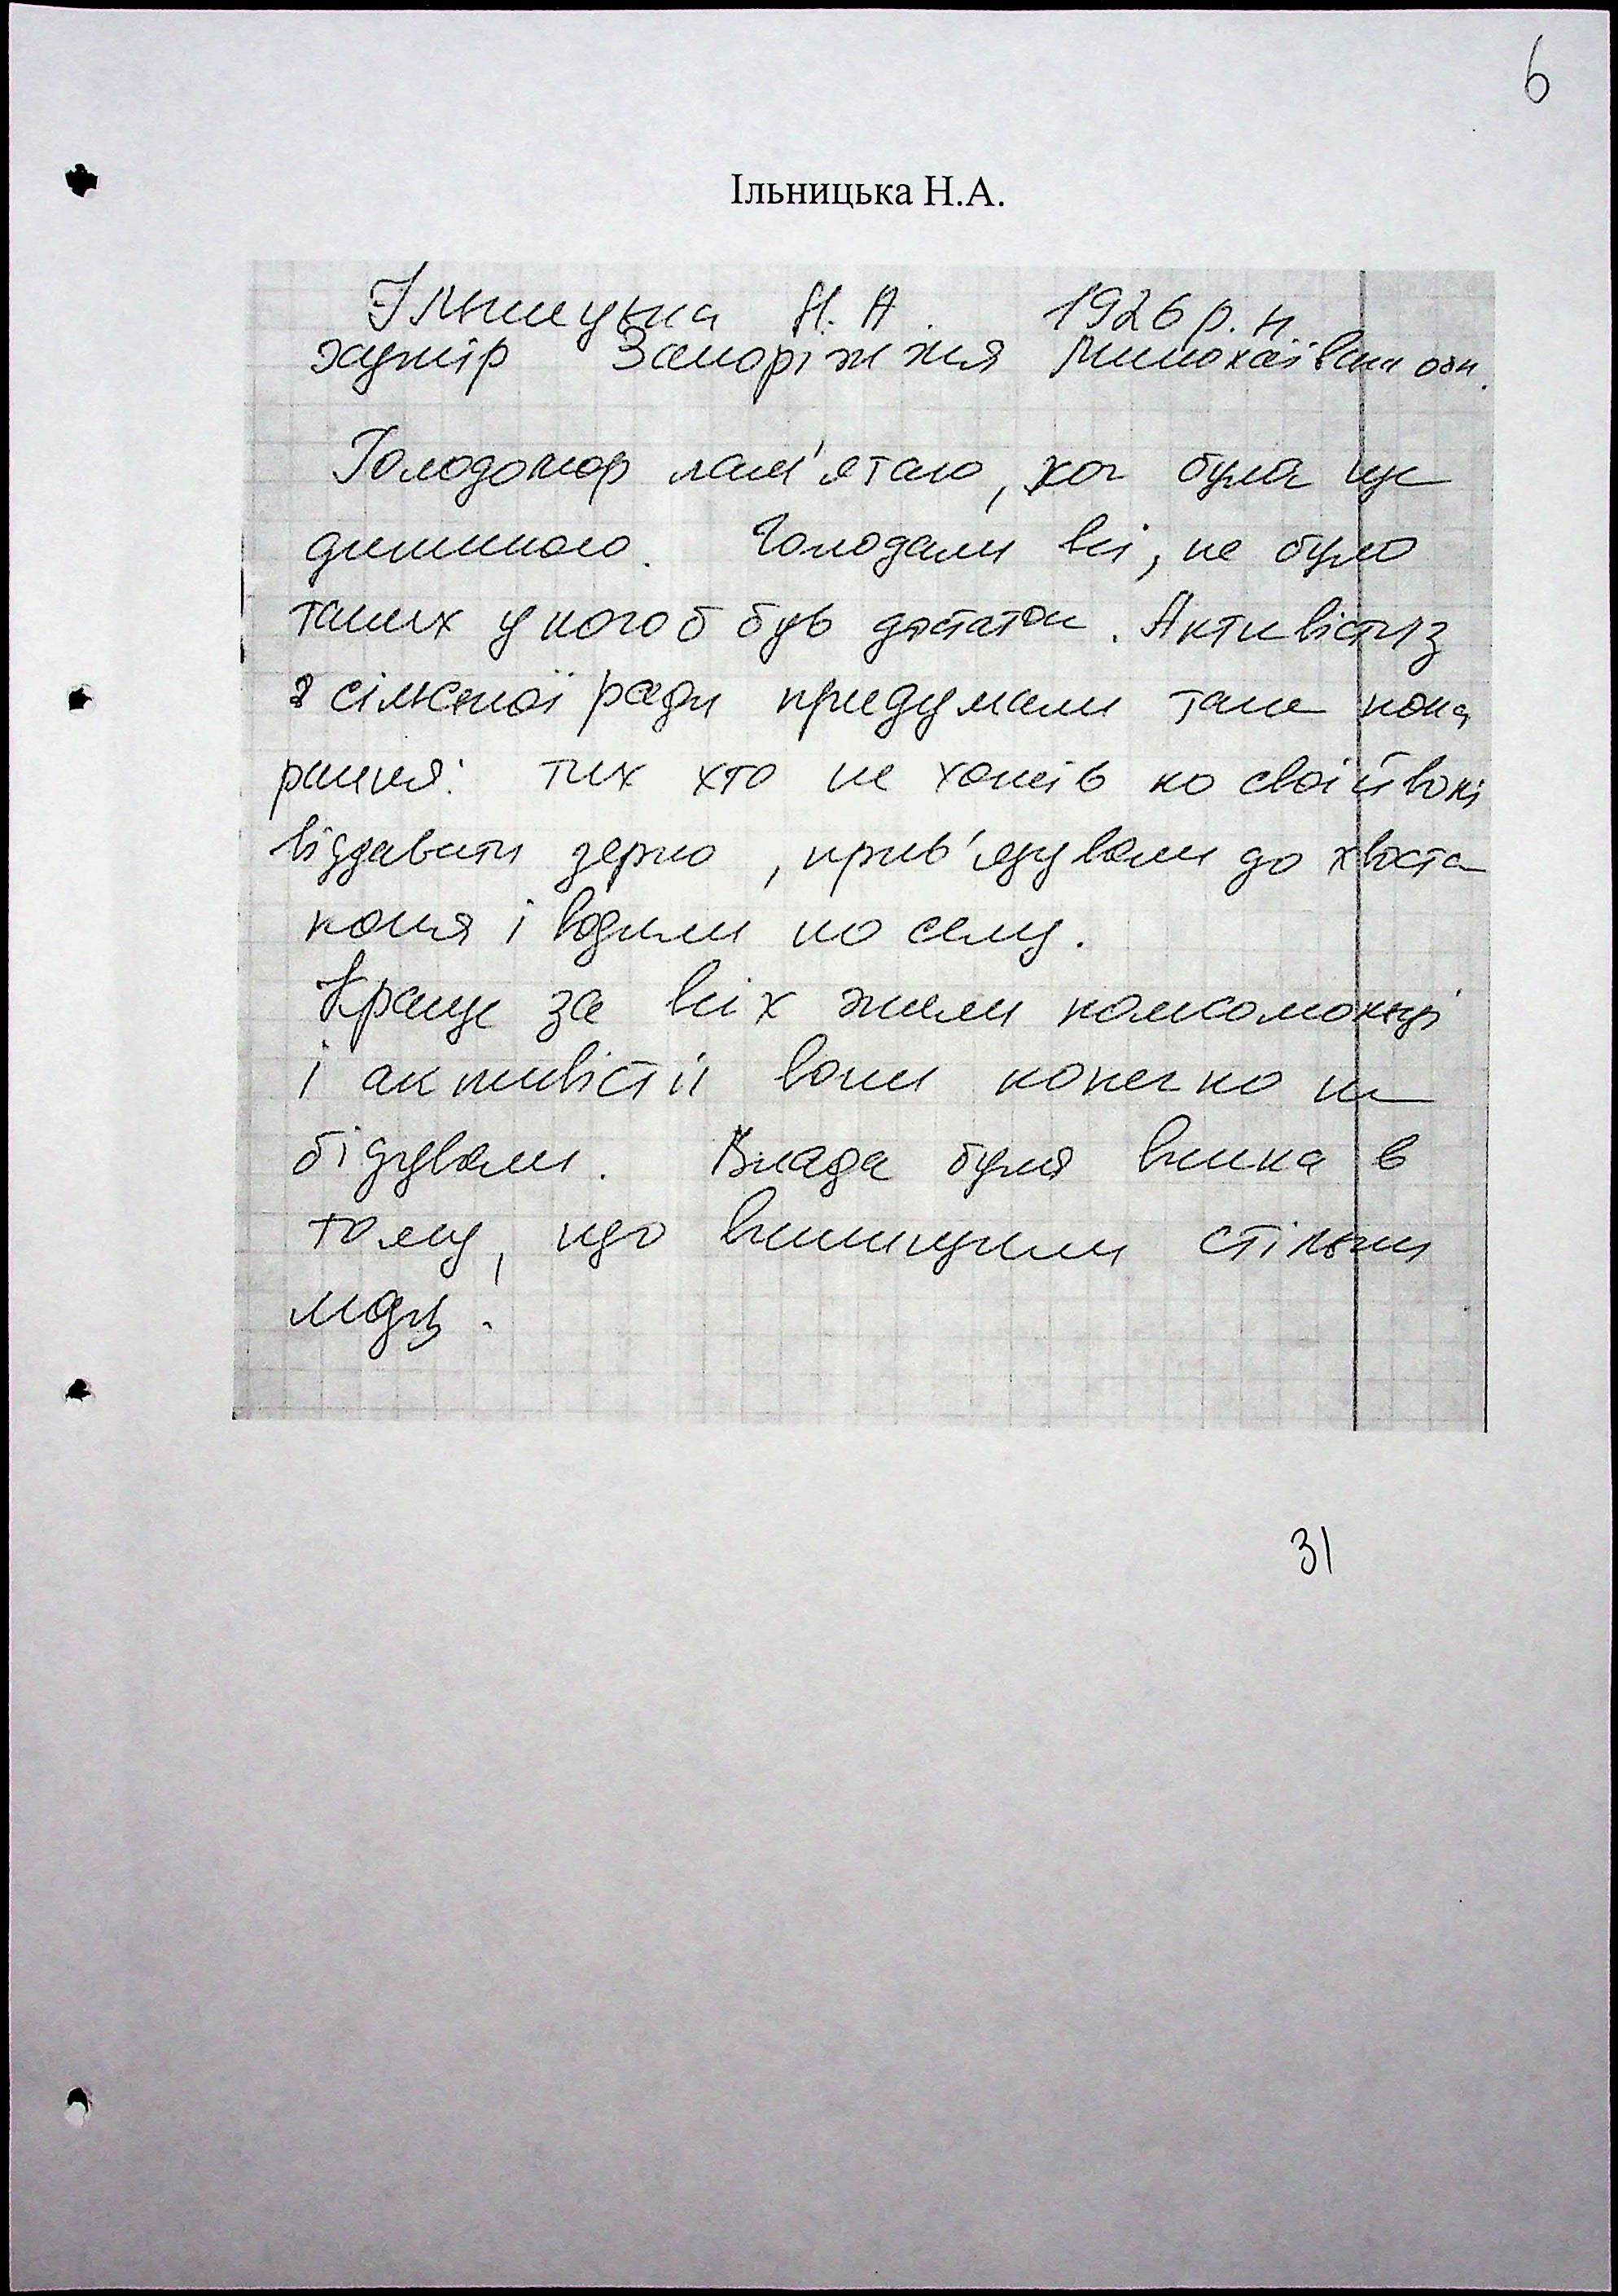 6
Ільницька Н.А.
Ільницька Н. А. 1926 р. н.
хутір Запоріжжя Миколаївськ обл.
Голодомор пам'ятаю, хоч була ще
дитиною. Голодали всі, не було
таких у кого б був достаток. Активісти з
з сільської ради придумали таке пока
рання: тих хто не хотів по своїй волі
віддавати зерно, прив'язували до хвоста
коня і водили по селу.
Краще за всіх жили комсомольці
і активісти вони конечно не
бідували. Влада була винна в
тому, що винищили стільки
людей.
31